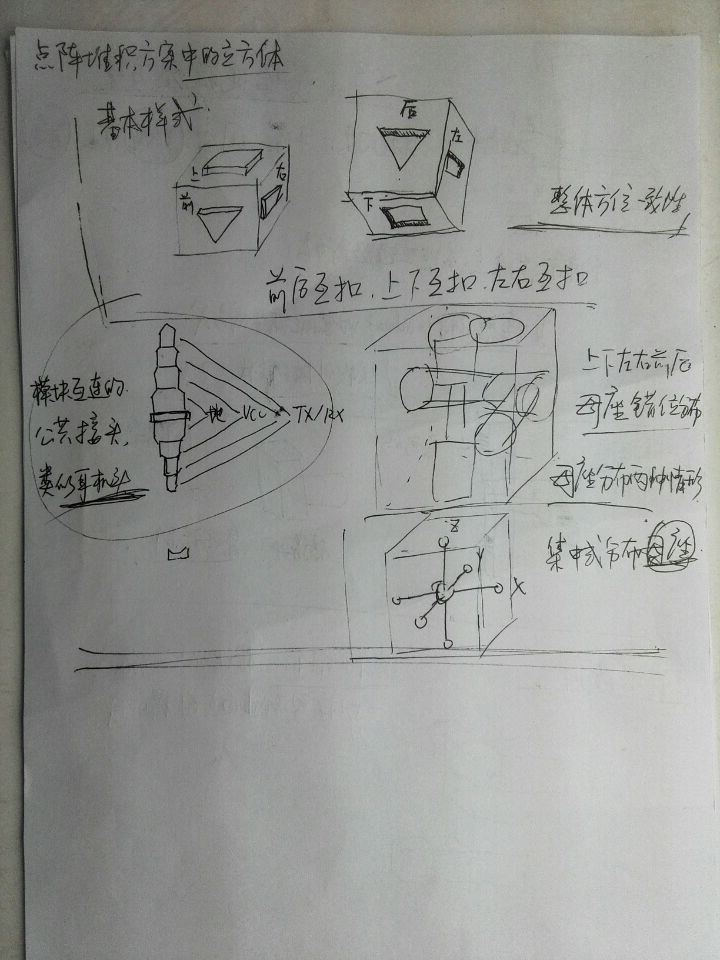 点阵堆积方案中的立方体
基本样式
上
右
前
后
左
下
整体方位一致性
前后互扣、上下互扣、左右互扣
模块互连的
公共接头,
类似耳机头
地
VCC
TX/RX
上下左右前后
母座错位分布
母座分布两种情形
Z
Y
X
集中式分布母座